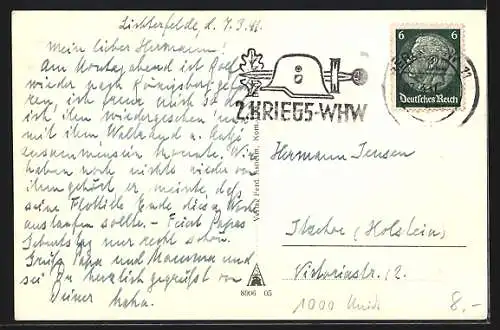 Lichterfelde, d. 7.3.41.
Mein lieber Hermann!
Am Montagabend ist Rolf
wieder nach Königsberg gefah-
ren, ich freue mich so daß
ich ihn wiedergesehen und
mit ihm Weltrand u. Gabi
zusammensein konnte. Wir
haben noch nichts wieder von
ihm gehört er meinte daß
seine Flottille Ende dieser Woche
auslaufen sollte. - Feiert Papas
Geburtstag nur recht schön.
Grüß Papa und Mamma und
sei Du herzlich gegrüßt von
Deiner
2. KRIEGS-WHW
6 6
Deutsches Reich
Hermann Jensen
Itzehoe (Holstein)
Victoriastr. 12.
Verlag Ferd.
8906 05
1000
8.-